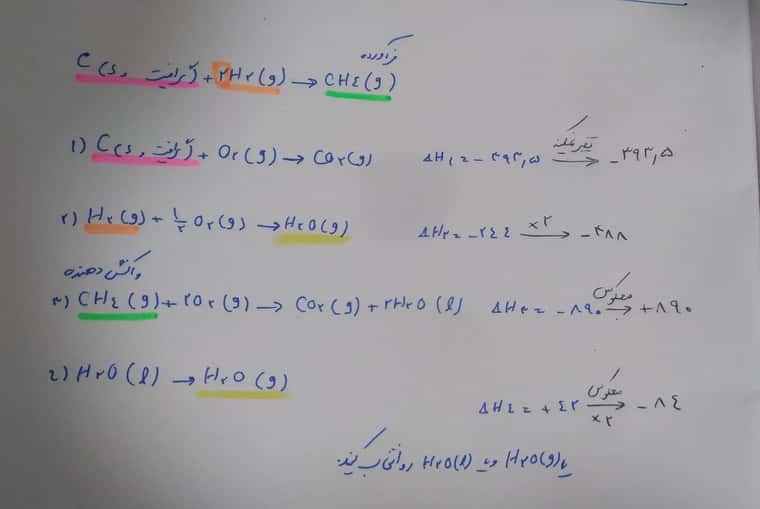 فرآورده
C (s, گرافیت) + ۲H۲(g) → CH٤(g)
۱) C (s, گرافیت) + O۲(g) → CO۲(g) ΔH۱ = -۳۹۳,۵ تغییر نمیکند → -۳۹۳,۵
۲) H۲(g) + ۱/۲ O۲(g) → H۲O(g) ΔH۲ = -۲٤٤ ×۲ → -۴۸۸
واکنش دهنده
۳) CH٤(g) + ۲O۲(g) → CO۲(g) + ۲H۲O(l) ΔH۳ = -۸۹۰ معکوس → +۸۹۰
٤) H۲O(l) → H۲O(g) ΔH٤ = +٤۲ معکوس ×۲ → -۸٤
یا H۲O(g) و یا H۲O(l) رو انتخاب کنید